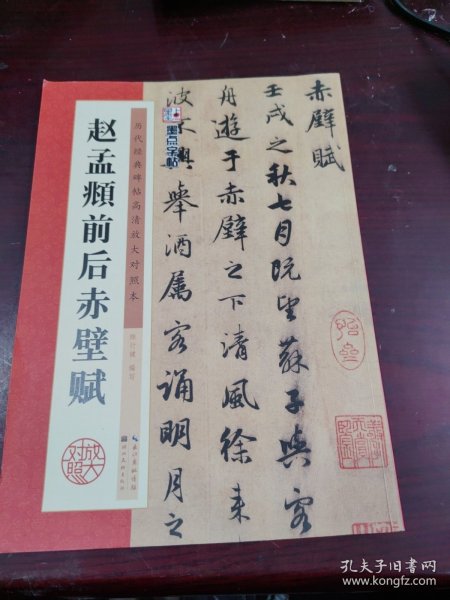 赵孟頫前后赤壁赋
历代经典碑帖高清放大对照本
编订
放大
对照
长江出版传媒
湖北美术出版社
墨点字帖
赤壁赋
壬戌之秋七月既望苏子与客
舟游于赤壁之下清风徐来
波不興舉酒属客诵明月之
孔夫子旧书网
www.kongfz.com